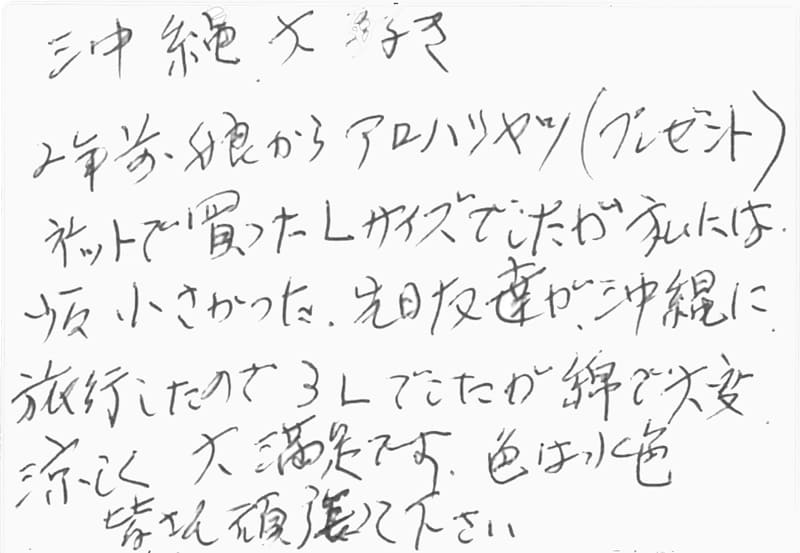 沖縄大好き
2年前、娘からアロハシャツ(プレゼント)
ネットで買ったLサイズでしたが私には
小さかった、先日友達が、沖縄に
旅行したので3Lでしたが綿で大変
涼しく 大満足です、色は水色
皆さん頑張って下さい